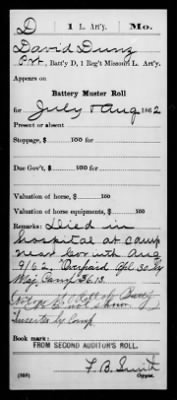 D 1 L. Art'y. Mo.
David Dunz
Pvt, Batt'y D, 1 Reg't Missouri L. Art'y.
Appears on
Battery Muster Roll
for July & Aug 1862
Present or absent
Stoppage, $ 100 for
Due Gov't, $ 100 for
Valuation of horse, $ 100
Valuation of horse equipments, $ 100
Remarks: Died in
hospital at camp
near Corinth Aug
9/62. Overpaid
by
not shown
Book mark:
FROM SECOND AUDITOR'S ROLL.
(360) F. B. Smith
Copyist.